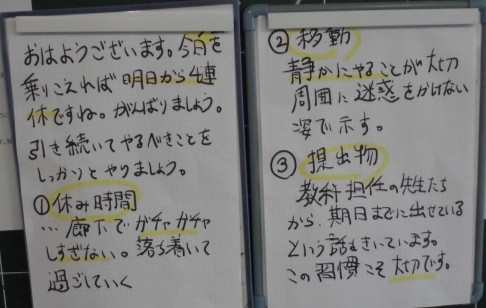 おはようございます。今日を
乗りこえれば明日から4連
休ですね。がんばりましょう。
引き続いてやるべきことを
しっかりとやりましょう。
①休み時間
…廊下でガチャガチャ
しすぎない。落ち着いて
過ごしていく
②移動
静かにやることが大切
周囲に迷惑をかけない
姿で示す。
③提出物
教科担任の先生たち
から、期日までに出せている
という話もきいています。
この習慣こそ大切です。